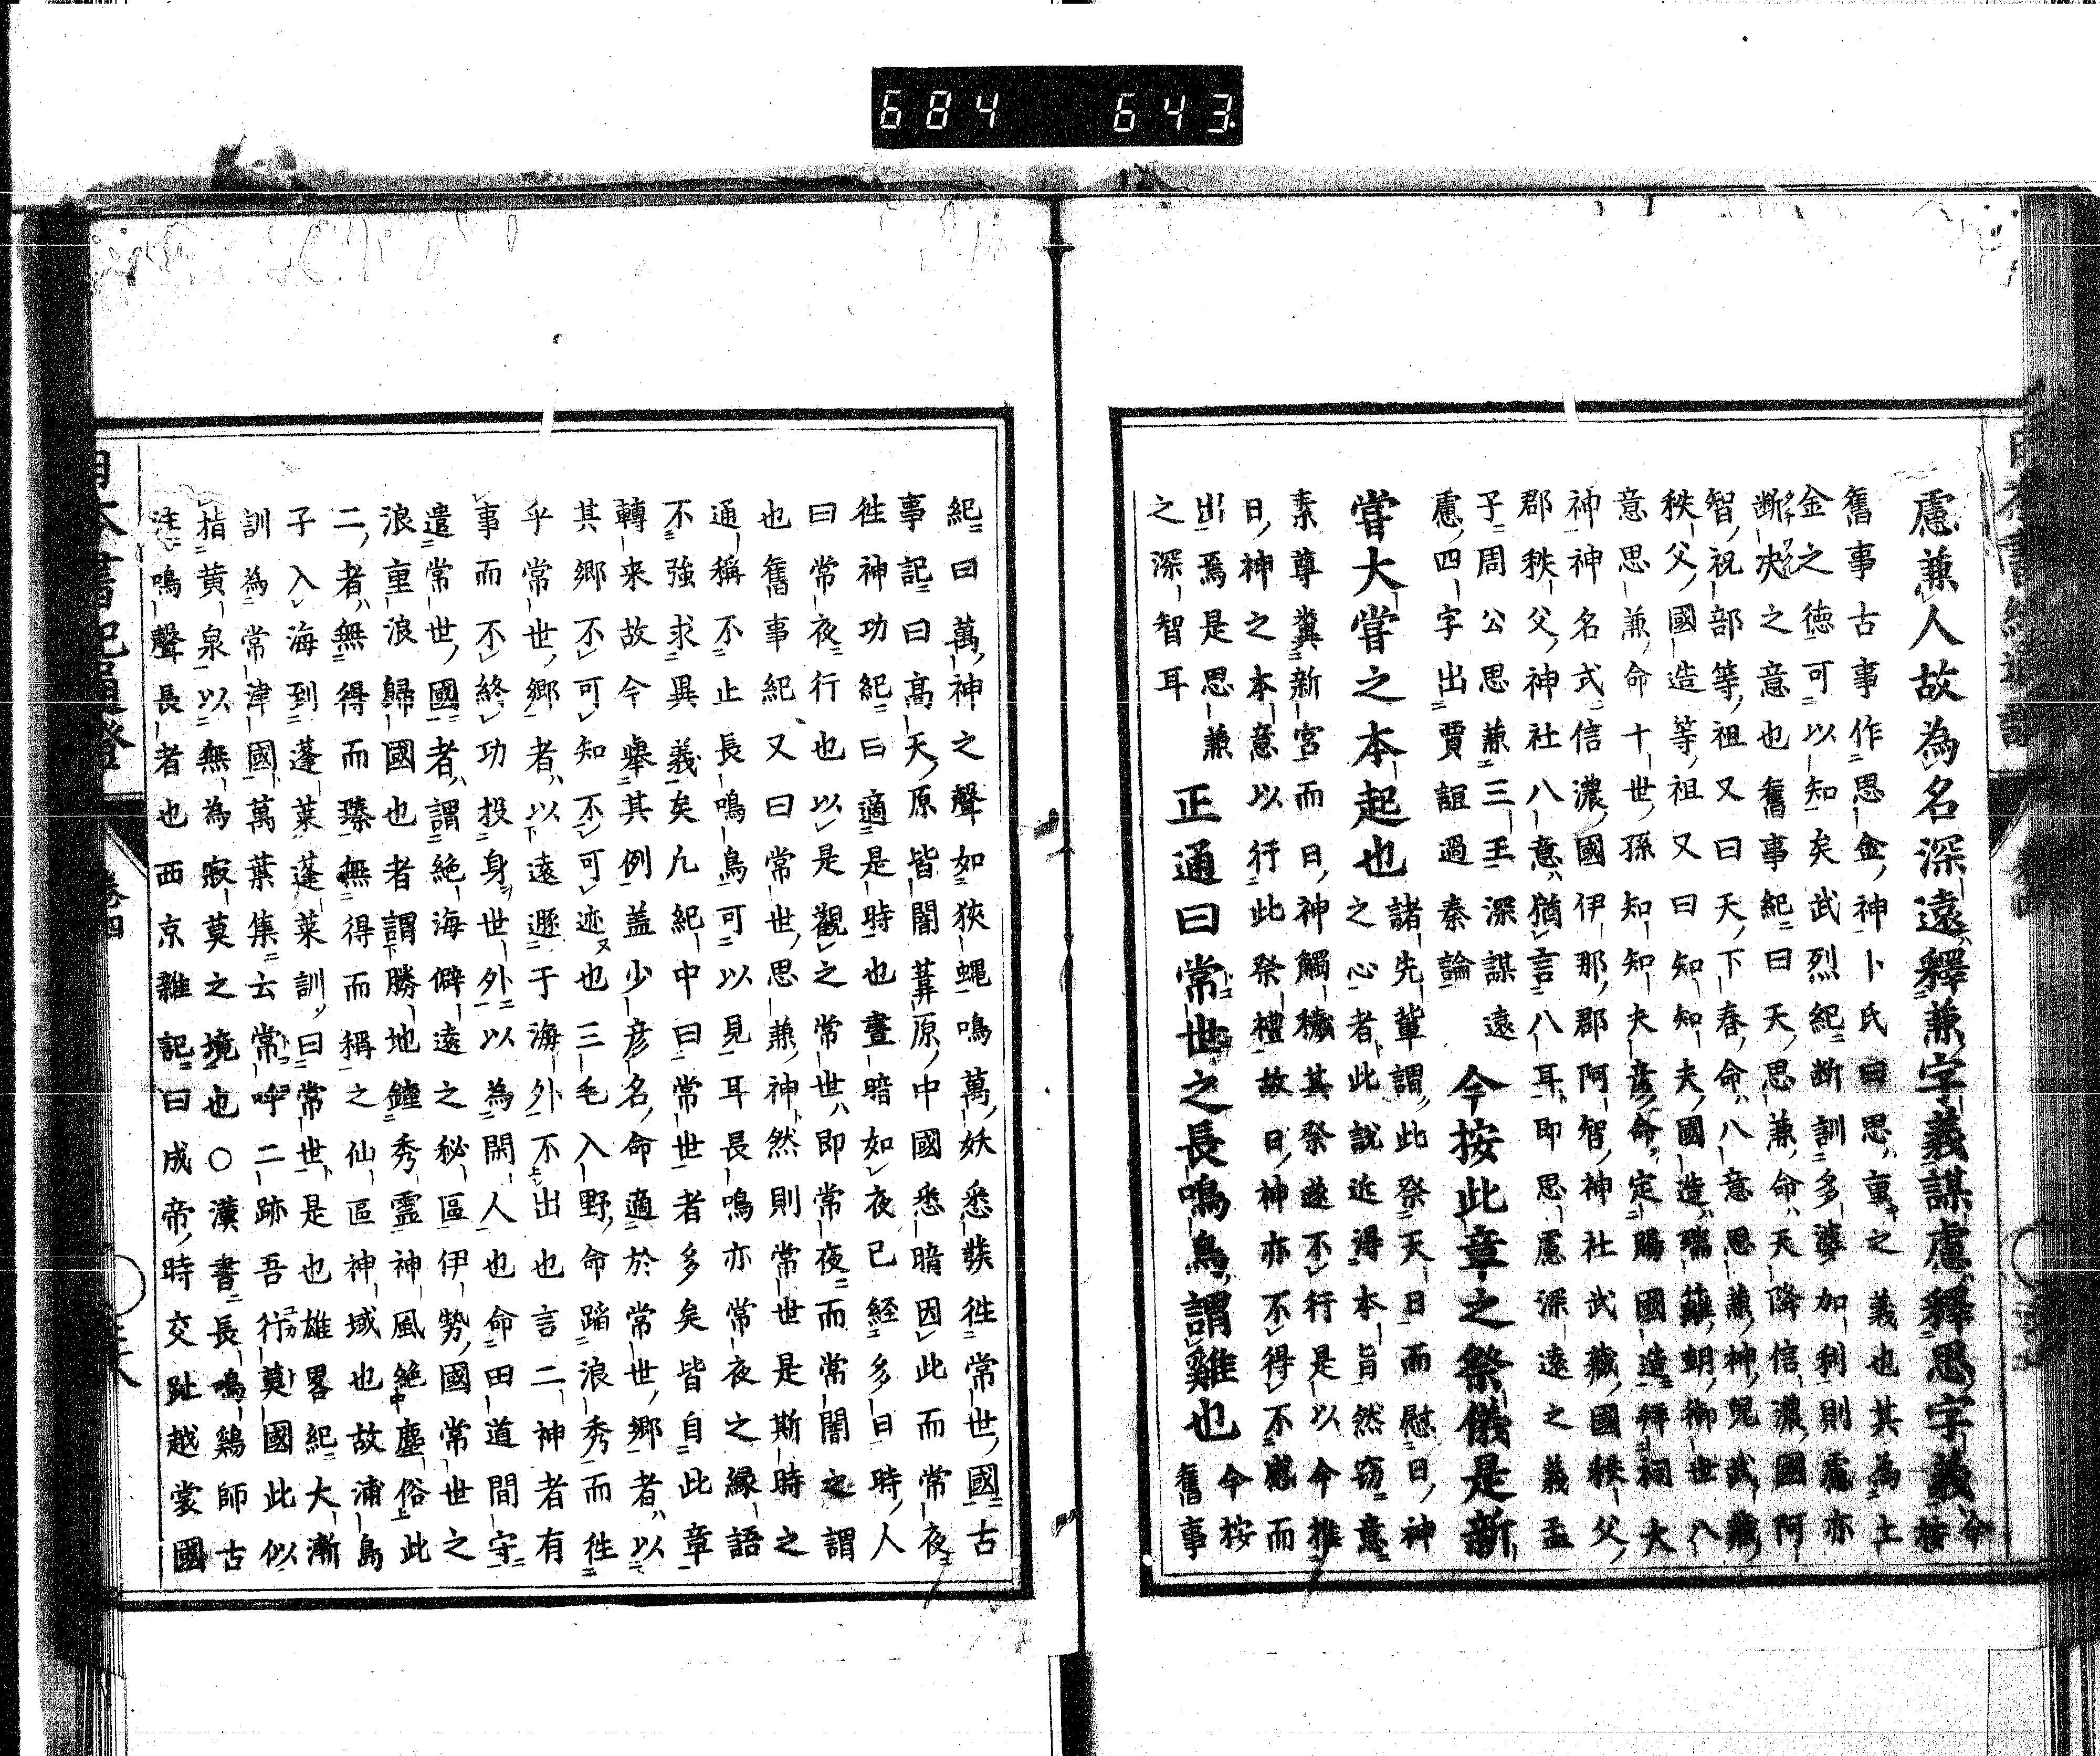 684 643
慮兼人故為名深遠釋兼字義謀慮釋思字義今
按
舊事古事作思金神卜氏曰思重之義也其為土
金之徳可以知矣武烈紀断訓多婆加利則慮亦
断决之意也舊事紀曰天思兼命天降信濃國阿
智祝部等祖又曰天下春命八意思兼神兒武藏
秩父國造等祖又曰知知夫國造瑞籬朝御世八
意思兼命十世孫知知夫彦命定賜國造拜祠大
神神名式信濃國伊那郡阿智神社武藏國秩父
郡秩父神社八意猶言八耳即思慮深遠之義孟
子周公思兼三王深謀遠
慮四字出賈誼過秦論
今按此章之祭儀是新
甞大甞之本起也
諸先輩謂此祭天日而慰日神
之心者此說近得本旨然窃意
素尊糞新宮而日神觸穢其祭遂不行是以今推
日神之本意以行此祭禮故日神亦不得不感而
出焉是思兼
之深智耳
正通曰常世之長鳴鳥謂雞也
今按
舊事
紀曰萬神之聲如狹蝿鳴萬妖悉發徃常世國古
事記曰髙天原皆闇葦原中國悉暗因此而常夜
徃神功紀曰適是時也晝暗如夜已経多日時人
曰常夜行也以是觀之常世即常夜而常闇之謂
也舊事紀又曰常世思兼神然則常世是斯時之
通稱不止長鳴鳥可以見耳長鳴亦常夜之緣語
不強求異義矣凢紀中曰常世者多矣皆自此章
轉来故今舉其例盖少彦名命適於常世郷者以
其郷不可知不可迹也三毛入野命蹈浪秀而徃
乎常世郷者以遠遯于海外不出也言二神者有
事而不終功投身世外以為閑人也命田道間守
遣常世國者謂絶海僻遠之秘區伊勢國常世之
浪重浪歸國也者謂勝地鐘秀靈神風絶塵俗此
二者無得而臻無得而稱之仙區神域也故浦島
子入海到蓬莱蓬莱訓曰常世是也雄畧紀大漸
訓為常津國萬葉集云常呼二跡吾行莫國此似
指黄泉以無為寂莫之境也○漢書長鳴鷄師古
注鳴聲長者也西京雜記曰成帝時交趾越裳國